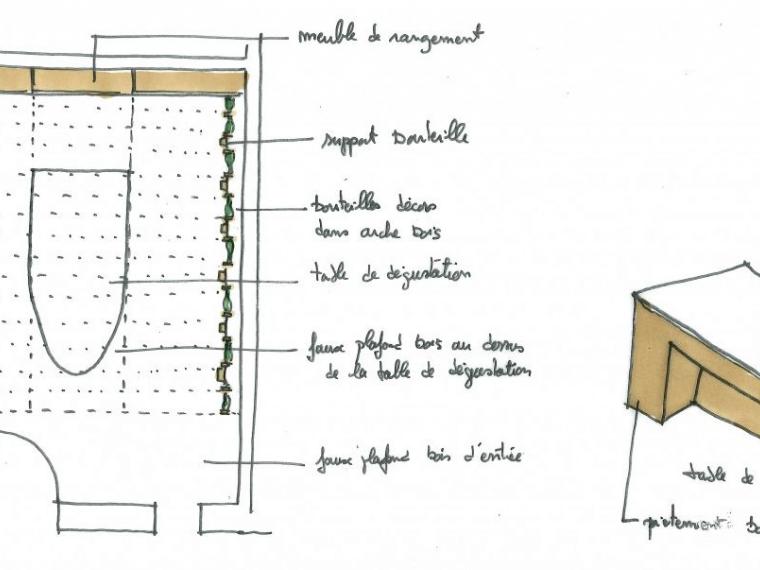 meuble de rangement
support bouteille
bouteilles décors
dans arche bois
table de dégustation
faux plafond bois au dessus
de la table de dégustation
faux plafond bois d'entrée
table de
pietement